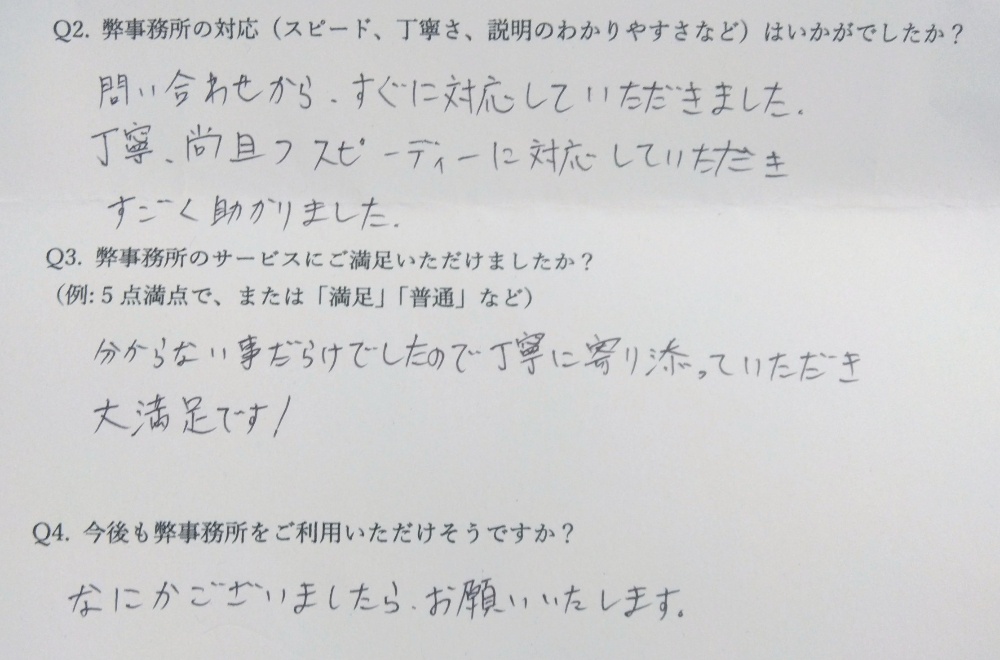 Q2. 弊事務所の対応（スピード、丁寧さ、説明のわかりやすさなど）はいかがでしたか？
問い合わせから、すぐに対応していただきました。
丁寧、尚且つスピーディーに対応していただき
すごく助かりました。
Q3. 弊事務所のサービスにご満足いただけましたか？
（例: 5 点満点で、または「満足」「普通」など）
分からない事だらけでしたので丁寧に寄り添っていただき
大満足です！
Q4. 今後も弊事務所をご利用いただけそうですか？
なにかございましたら、お願いいたします。